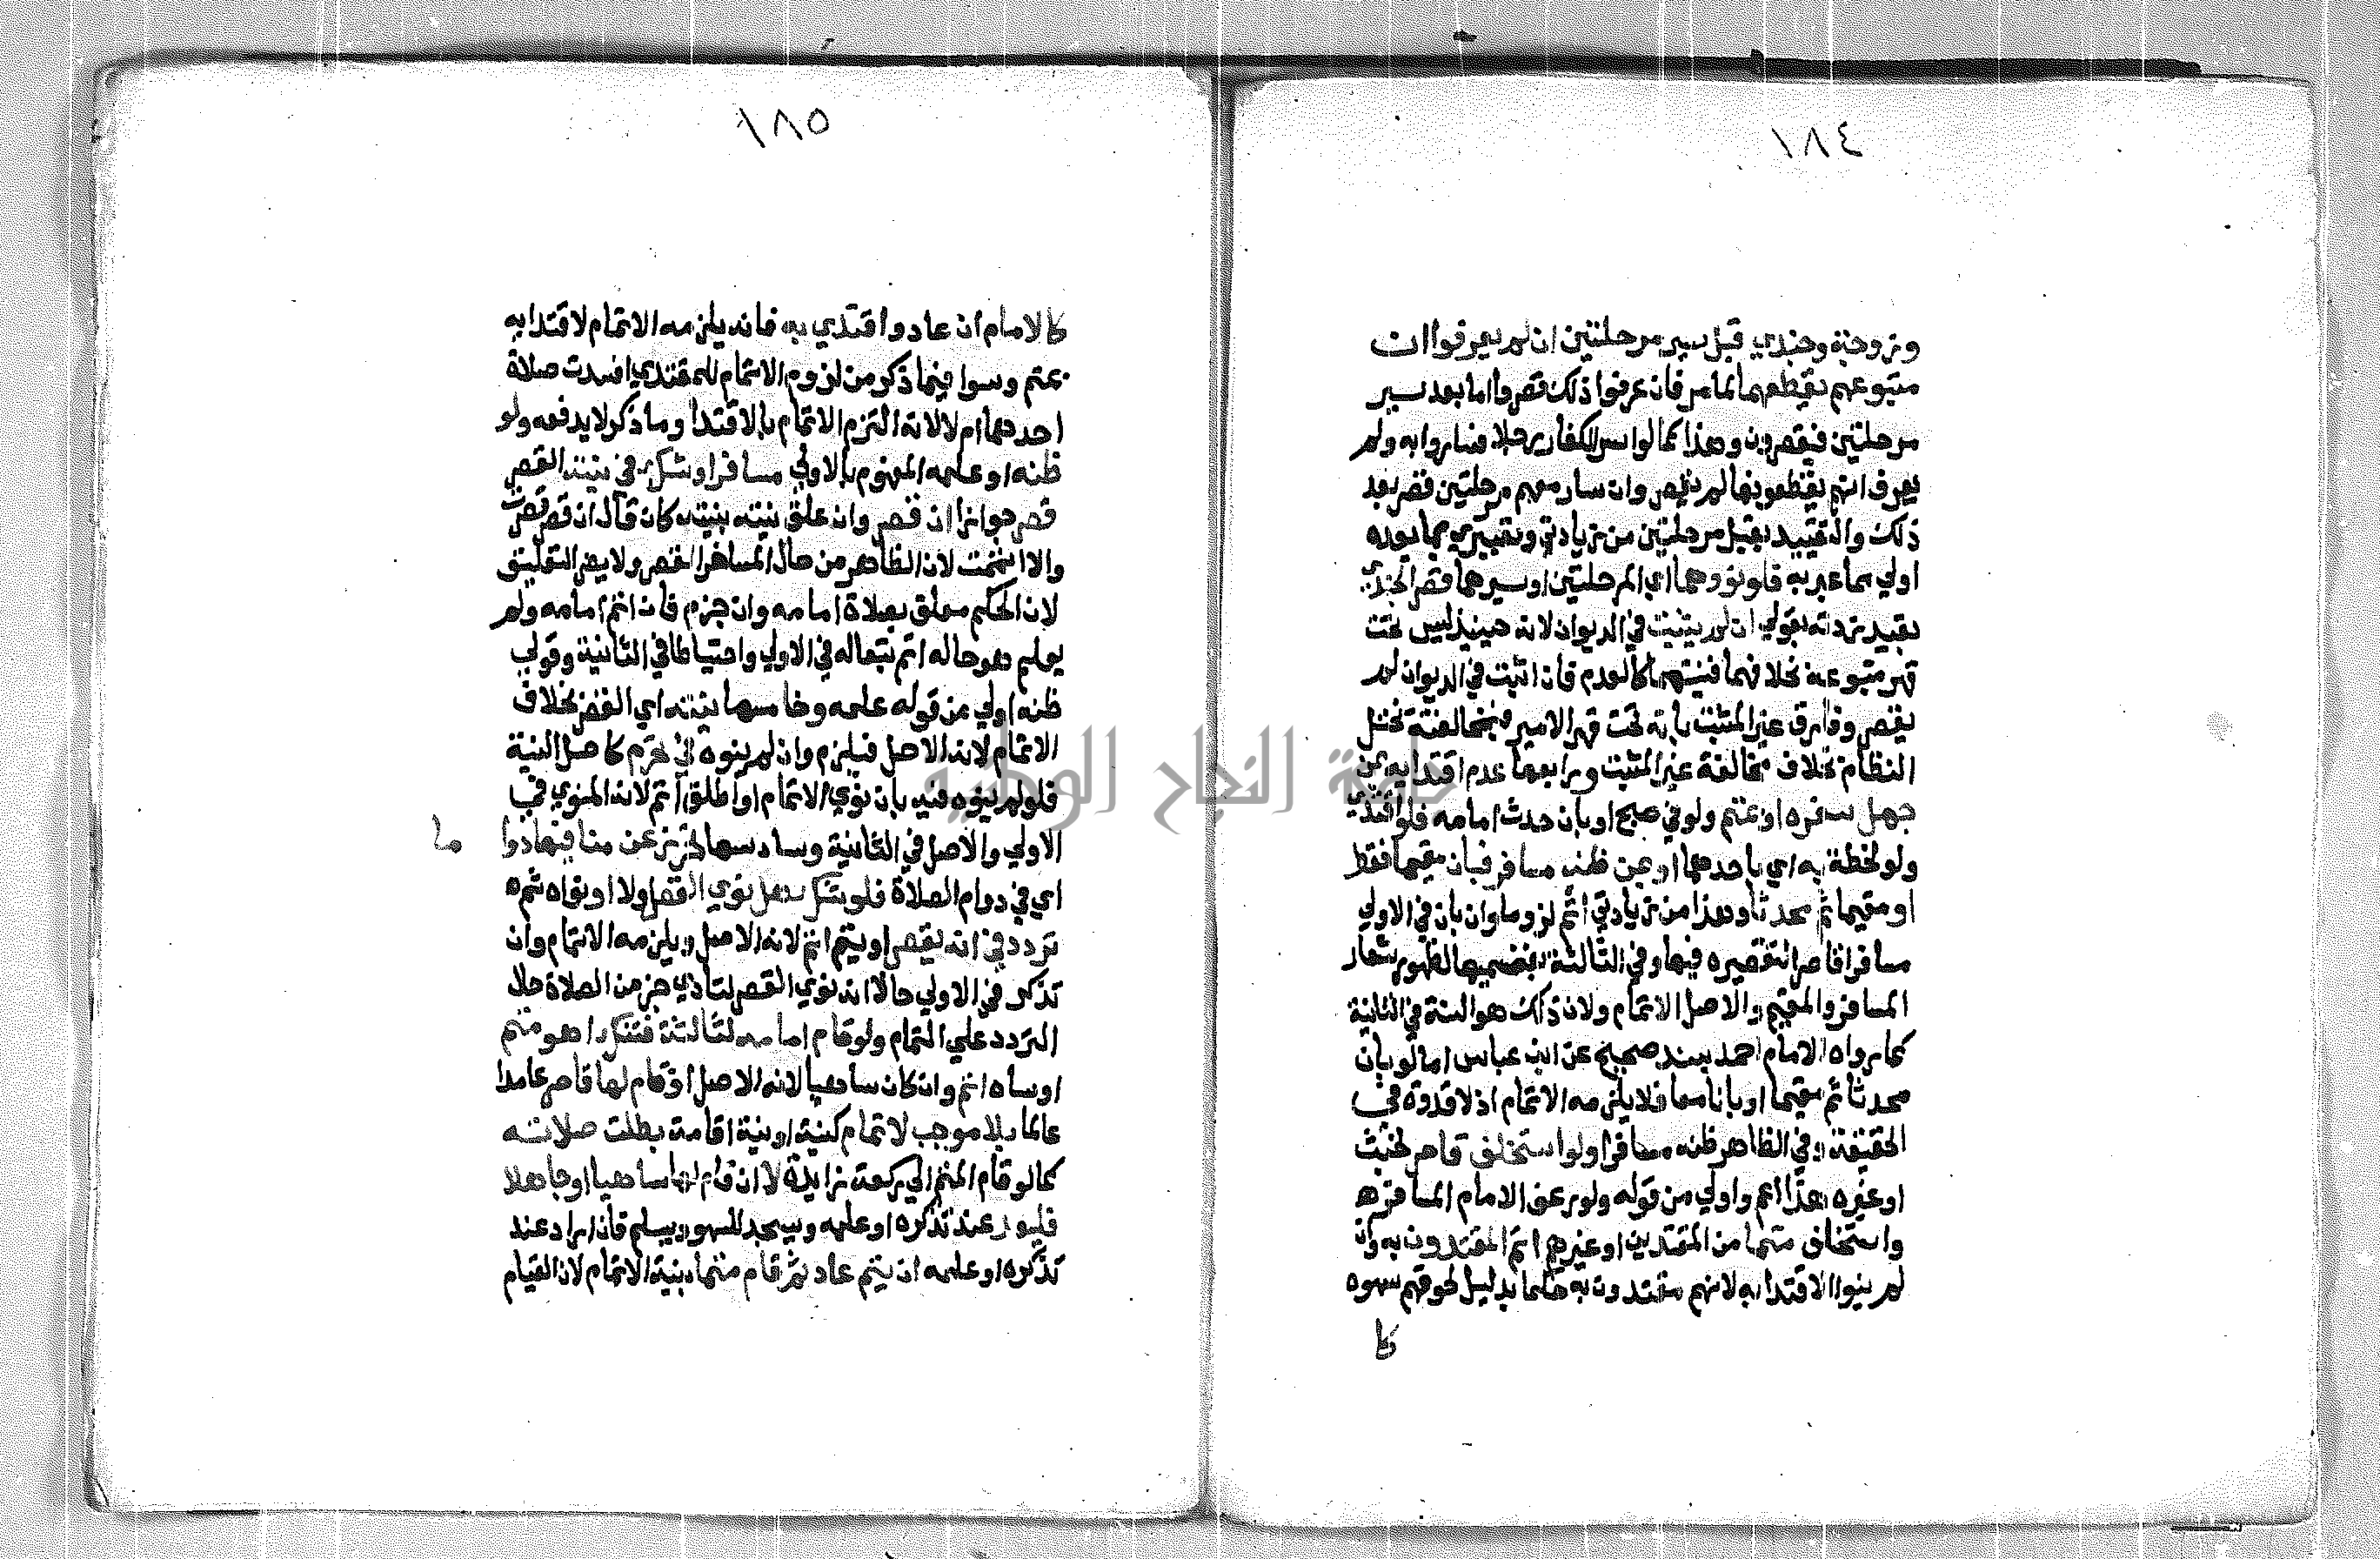 ١٨٤
وزوجة وجندي قبل سير مرحلتين ان لم يعرفوا ان
متبوعهم يقطعهما لما مر فان عرفوا ذلك قصروا اما بعد سير
مرحلتين فيقصرون وهذا كما لو اسر الكفار رجلا فساروا به ولم
يعرف انهم يقطعونها لم يقصر وان سار معهم مرحلتين قصر بعد
ذلك والتقييد بقبل مرحلتين من زيادتي وتعبيري بما يورده
اولي مما عبر به فلو نووهما اي المرحلتين او سيرهما قصر الجندي
بقيد زدته بقولي ان لم يثبت في الديوان لانه حينيذ ليس تحت
قهر متبوعه بخلافهما فنيتهما كالعدم فان اثبت في الديوان لم
يقصر وفارق غير المثبت بانه تحت قهر الامير فبمخالفته يختل
النظام بخلاف مخالفة غير المثبت ورابعها عدم اقتدايه بمن
جهل سفره او بمتم ولو في صبح او بان حدث امامه فلو اقتدي
ولو لحظة به اي باحدهما او بمن ظنه مسافر فبان مقيما فقط
او مقيما ثم محدثا وهذا من زيادتي اتم لزوما وان بان في الاولي
مسافرا قاصرا لتقصيره فيها وفي الثالثة بقسميها لظهور شعار
المسافر والمقيم والاصل الاتمام ولان ذلك هو السنة في الثانية
كما رواه الامام احمد بسند صحيح عن ابن عباس اما لو بان
محدثا ثم مقيما او بانا معا فلا يلزمه الاتمام اذ لا قدوة في
الحقيقة وفي الظاهر ظنه مسافرا ولو استخلف قاصر لخبث
او غيره هذا اعم واولي من قوله ولو رعف الامام المسافر هـ
واستخلف متما من المقتدين او غيرهم اتم المقتدون به وان
لم ينووا الاقتدا به لانهم مقتدون به حكما بدليل لحوقهم سهوه
كا
١٨٥
كالامام ان عاد واقتدي به فانه يلزمه الاتمام لاقتدايه
بمتم وسوا فيما ذكر من لزوم الاتمام للمقتدي افسدت صلاة
احدهما ام لا لانه التزم الاتمام بالاقتدا وما ذكر لا يدفعه ولو
ظنه او علمه المفهوم بالاولي مسافرا وشك في نيته القصر
قصر جوازا ان قصر وان علق نيته بنيته كان قال ان قصر قصرت
والا اتممت لان الظاهر من حال المسافر القصر ولا يضر التعليق
لان الحكم معلق بصلاة امامه وان جزم فان اتم امامه ولم
يعلم هو حاله اتم تبعا له في الاولي واحتياطا في الثانية وقولي
ظنه اولي من قوله علمه وخامسها نيته اي القصر بخلاف
الاتمام لانه الاصل فيلزم وان لم ينوه في تحرم كاصل النية
فلو لم ينوه فيه بان نوي الاتمام او اطلق اتم لانه المنوي في
الاولي والاصل في الثانية وسادسها تحرز عن منافيها دوا
ما
اي في دوام الصلاة فلو شك هل نوي القصر اولا او نواه ثم
تردد في انه يقصر او يتم اتم لانه الاصل ويلزمه الاتمام وان
تذكر في الاولي حالا انه نوي القصر لتأدي جزء من الصلاة حال
التردد علي التمام ولو قام امامه لثالثة فشك اهو متم
او ساه اتم وان كان ساهيا لانه الاصل او قام لها قاصر عامدا
عالما بلا موجب لاتمام كنيته او نية اقامة بطلت صلاته
كما لو قام المتم الي ركعة زايدة لا ان قام لها ساهيا او جاهلا
فليعد عند تذكره او علمه ويسجد للسهو ويسلم فان اراد عند
تذكره او علمه ان يتم عاد ثم قام متما بنية الاتمام لان القيام
جامعة النجاح الوطنية